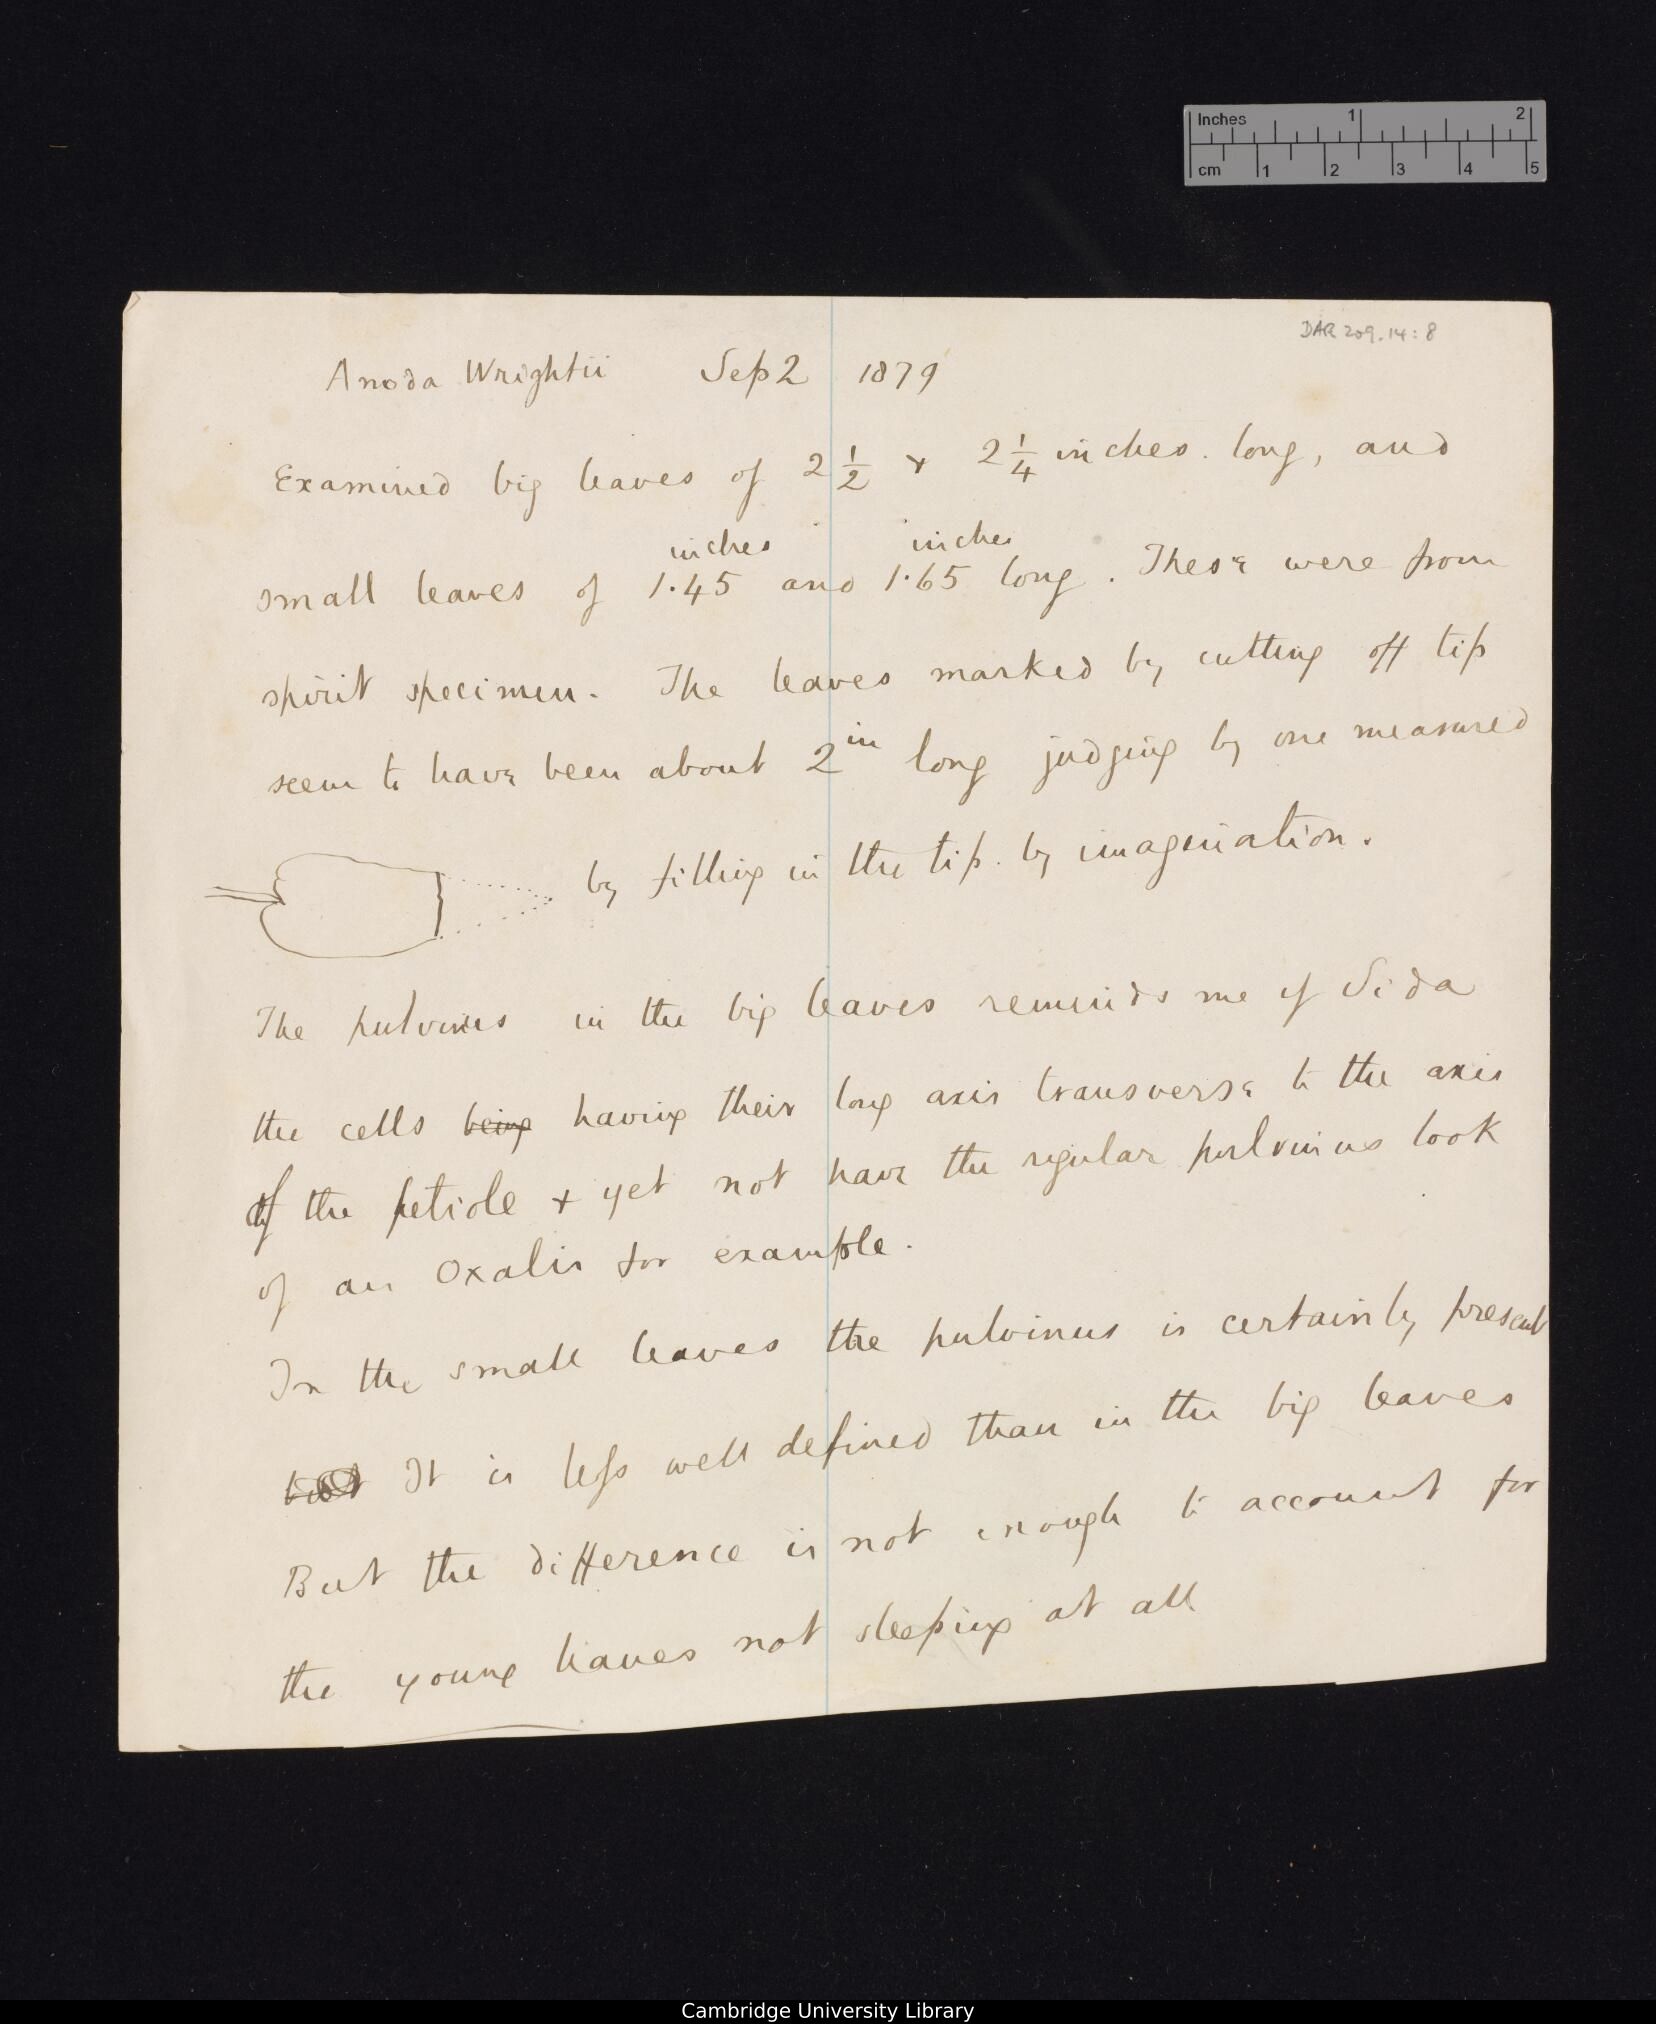 Inches 1 2
cm 1 2 3 4 5
DAR 209.14:8
Anoda Wrightii Sep 2 1879
Examined big leaves of 2 1/2 + 2 1/4 inches. long, and
inches inches
small leaves of 1.45 and 1.65 long. These were from
spirit specimen. The leaves marked by cutting off tip
seem to have been about 2 in long judging by one measured
by filling in the tip. by imagination.
The pulvinus in the big leaves reminds me of Sida
the cells being having their long axis transverse to the axis
of the petiole + yet not have the regular pulvinus look
of an Oxalis for example.
In the small leaves the pulvinus is certainly present
but It is less well defined than in the big leaves
But the difference is not enough to account for
the young leaves not sleeping at all
Cambridge University Library